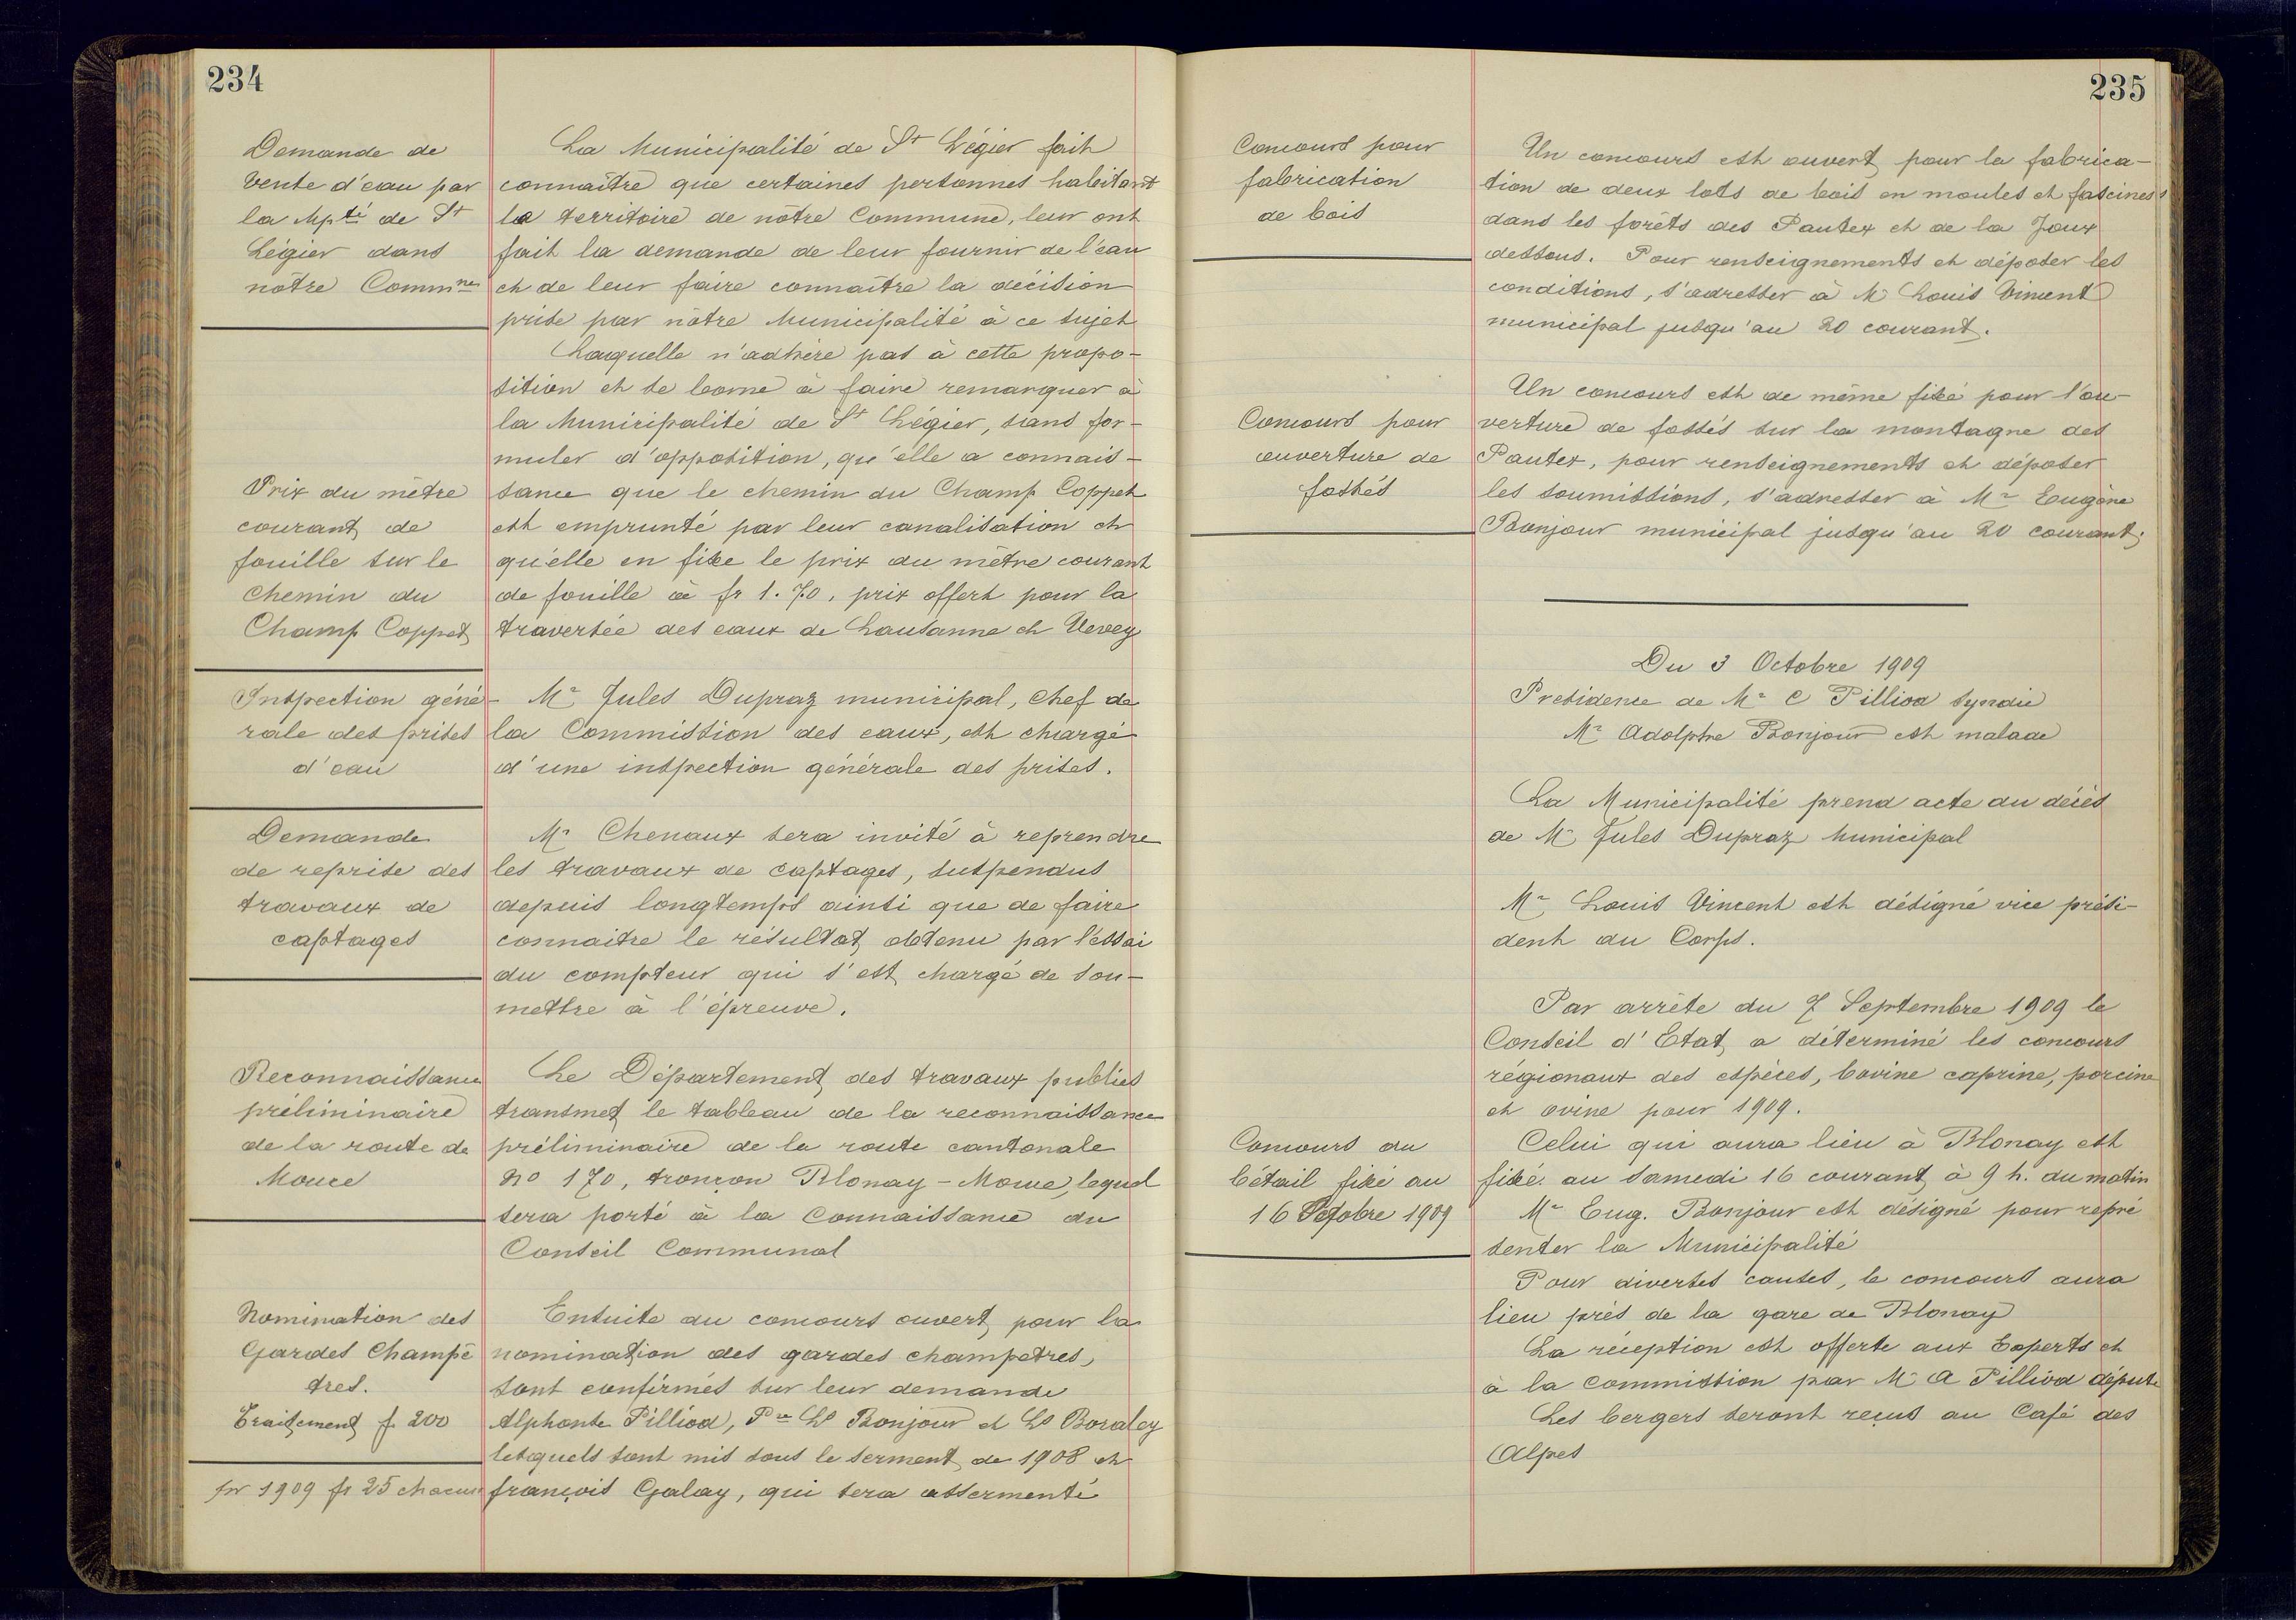 234
Demande de
vente d'eau par
la Mpté de St
Légier dans
nôtre Commne
La Municipalité de St Légier fait
connaître que certaines personnes habitant
le territoire de nôtre Commune, leur ont
fait la demande de leur fournir de l'eau
et de leur faire connaître la décision
prise par nôtre Municipalité à ce sujet
Laquelle n'adhère pas à cette propo-
sition et se borne à faire remarquer à
la Municipalité de St Légier, sans for-
muler d'opposition, qu'elle a connais-
sance que le chemin du Champ Coppet
est emprunté par leur canalisation et
qu'elle en fixe le prix du mètre courant
de fouille à fr 1.70, prix offert pour la
traversée des eaux de Lausanne et Vevey
Prix du mètre
courant de
fouille sur le
chemin du
Champ Coppet
Inspection géné-
rale des prises
d'eau
Mr Jules Dupraz municipal, chef de
la Commission des eaux, est chargé
d'une inspection générale des prises.
Demande
de reprise des
travaux de
captages
Mr Chenaux sera invité à reprendre
les travaux de captages, suspendus
depuis longtemps ainsi que de faire
connaitre le résultat obtenu par l'essai
du compteur qui s'est chargé de sou-
mettre à l'épreuve.
Reconnaissance
préliminaire
de la route de
Mouce
Le Département des travaux publics
transmet le tableau de la reconnaissance
préliminaire de la route cantonale
No 170, tronçon Blonay - Mouce, lequel
sera porté à la connaissance du
Conseil Communal
Nomination des
Gardes Champê
tres.
Traitement f. 200
pr 1909 fr 25 chacun
Ensuite du concours ouvert pour la
nomination des gardes champetres,
sont confirmés sur leur demande
Alphonse Pilliod, Pre Ls Bonjour et Ls Boraley
lesquels sont mis sous le serment de 1908 et
françois Galay, qui sera assermenté
235
Concours pour
fabrication
de bois
Un concours est ouvert pour la fabrica-
tion de deux lots de bois en moules et fascines
dans les forêts des Pautex et de la Joux
dessous. Pour renseignements et déposer les
conditions, s'adresser à Mr Louis Vincent
municipal jusqu'au 20 courant.
Concours pour
ouverture de
fossés
Un concours est de même fixé pour l'ou-
verture de fossés sur la montagne des
Pautex, pour renseignements et déposer
les soumissions, s'adresser à Mr Eugène
Bonjour municipal jusqu'au 20 courant.
Du 3 Octobre 1909
Présidence de Mr C Pilliod Syndic
Mr Adolphe Bonjour est malade
La Municipalité prend acte du décès
de Mr Jules Dupraz Municipal
Mr Louis Vincent est désigné vice prési-
dent du Corps.
Par arrête du 7 Septembre 1909 le
Conseil d'Etat a déterminé les concours
régionaux des espèces, bovine caprine, porcine
et ovine pour 1909.
Concours du
bétail fixé au
16 Octobre 1909
Celui qui aura lieu à Blonay est
fixé au Samedi 16 courant à 9 h. du matin
Mr Eug. Bonjour est désigné pour repré
senter la Municipalité
Pour diverses causes, le concours aura
lieu près de la gare de Blonay
La réception est offerte aux Experts et
à la commission par Mr A Pilliod député
Les bergers seront reçus au Café des
Alpes